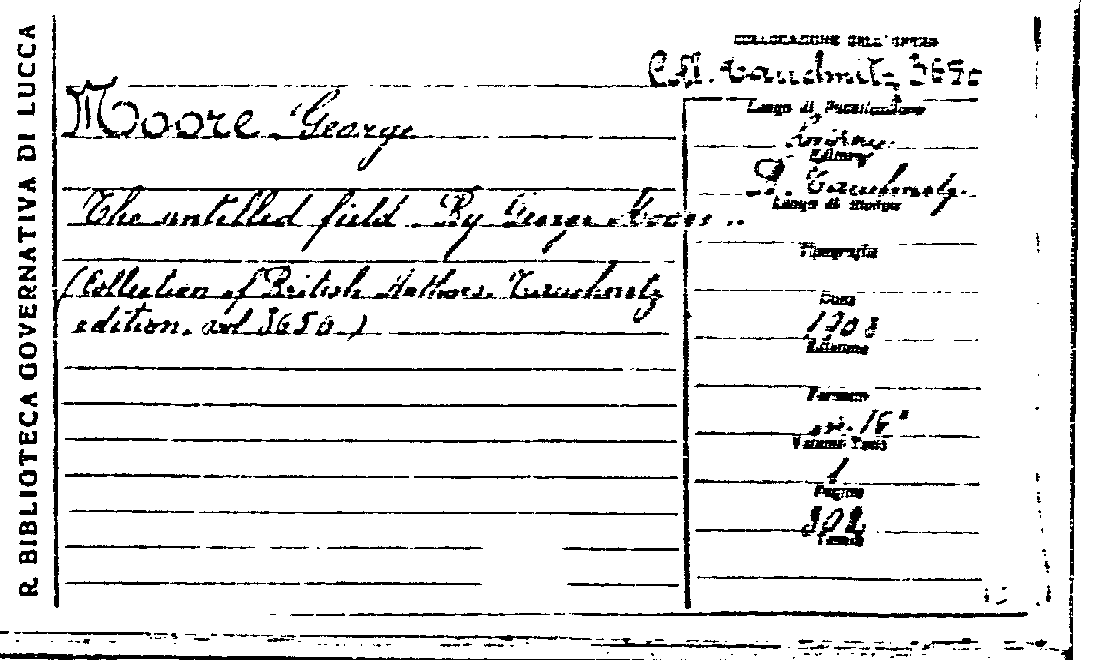 R. BIBLIOTECA GOVERNATIVA DI LUCCA
COLLOCAZIONE DELL'OPERA
Tauchnitz 3650
Moore George
The untilled field. By George Moore..
(Collection of British Authors. Tauchnitz
edition. vol 3650.)
Luogo di Pubblicazione
Editore
B. Tauchnitz
Luogo di stampa
Tipografia
Data
1903
Edizione
Formato
in. 16°
Volume Tomi
1
Pagine
302
Tavole